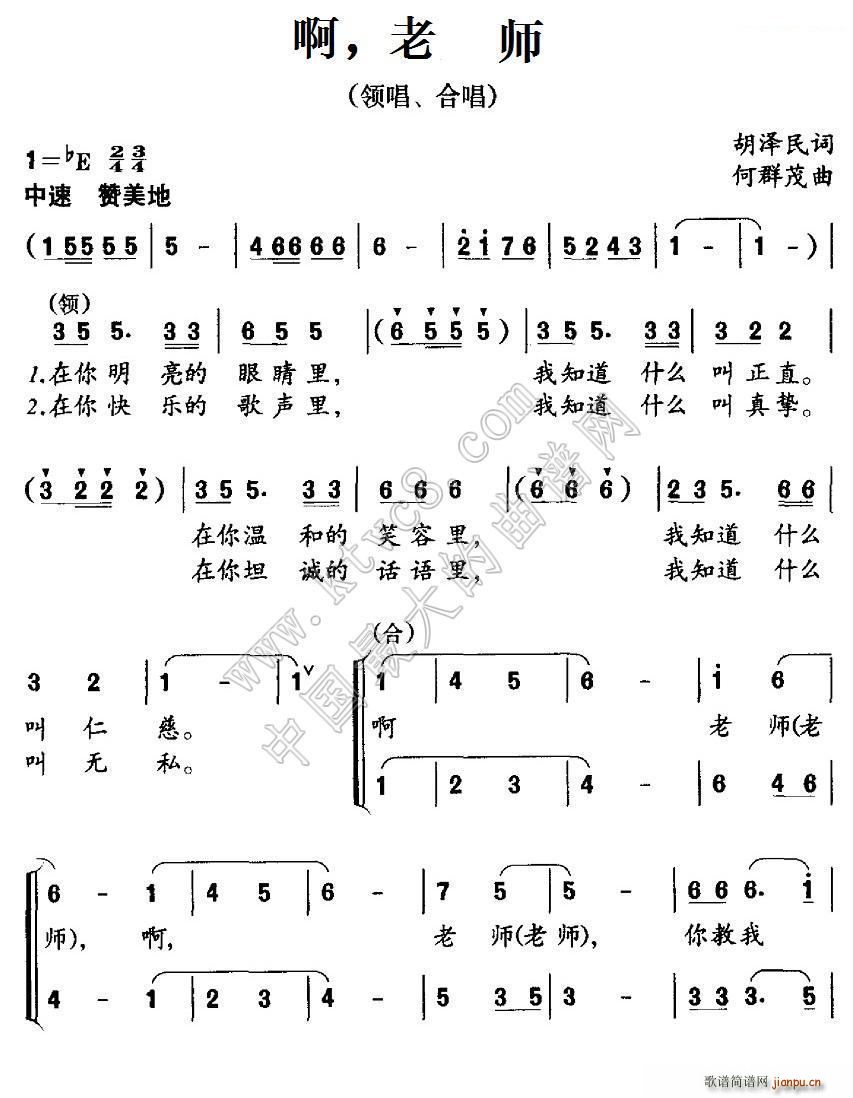 啊，老 师
（领唱、合唱）
1=♭E 2/4 3/4
胡泽民词
何群茂曲
中速 赞美地
(1 5 5 5 5 5 | 5 - | 4 6 6 6 6 6 | 6 - | 2 1 7 6 | 5 2 4 3 | 1 - | 1 -) |
(领)
3 5 5. 3 3 | 6 5 5 | (6 5 5 5) | 3 5 5. 3 3 | 3 2 2 |
1.在你明 亮的 眼睛里， 我知道 什么 叫正直。
2.在你快 乐的 歌声里， 我知道 什么 叫真挚。
(3 2 2 2) | 3 5 5. 3 3 | 6 6 6 | (6 6 6 6) | 2 3 5. 6 6 |
在你温 和的 笑容里， 我知道 什么
在你坦 诚的 话语里， 我知道 什么
(合)
3 2 | 1 - | 1 ∨ | 1 | 4 5 | 6 - | 1 6 |
叫 仁 慈。 啊 老 师(老
叫 无 私。
1 | 2 3 | 4 - | 6 4 6 |
6 - | 1 | 4 5 | 6 - | 7 5 | 5 - | 6 6 6. 1 |
师)， 啊， 老 师(老师)， 你教我
4 - | 1 | 2 3 | 4 - | 5 3 5 | 3 - | 3 3 3. 5 |
www.ktvc8.com
中国最大的曲谱网
歌谱简谱网
jianpu.cn